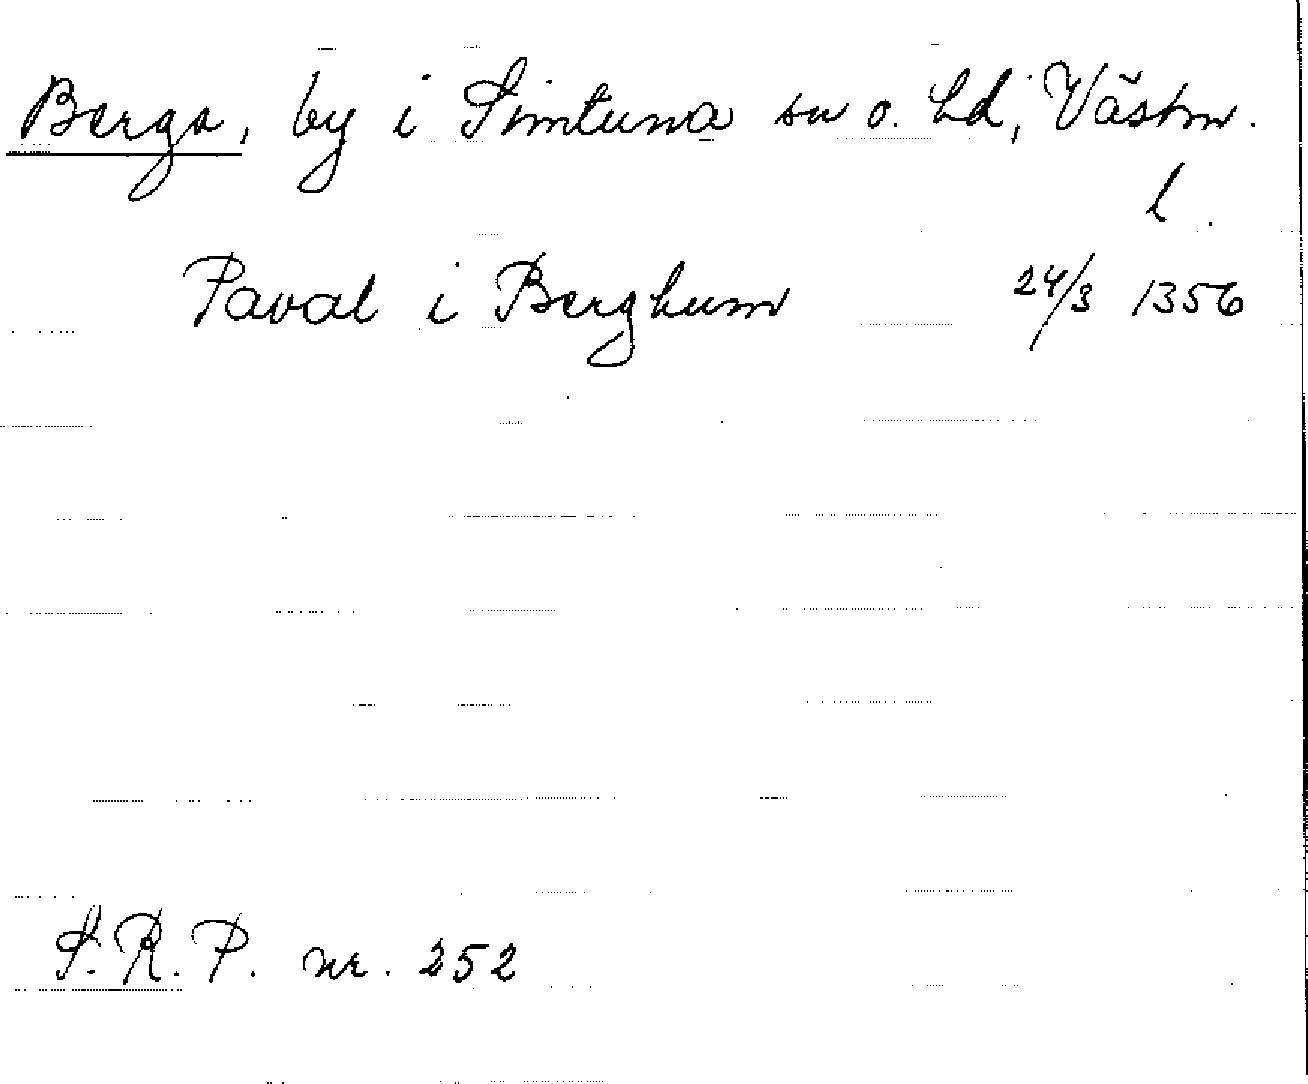 Berga, by i Simtuna sn o. hd, Västm.
l.
Paval i Berghum 24/3 1356
S.R.P. nr. 252